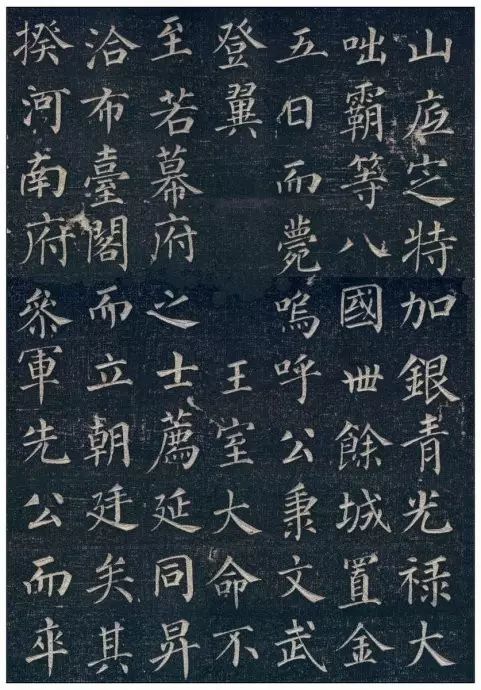 山底定特加銀青光祿大
咄霸等八國卌餘城置金
五日而薨嗚呼公秉文武
登翼　王室大命不
至若幕府之士薦延同昇
洽布臺閣而立朝廷矣其
揆河南府叅軍先公而卒